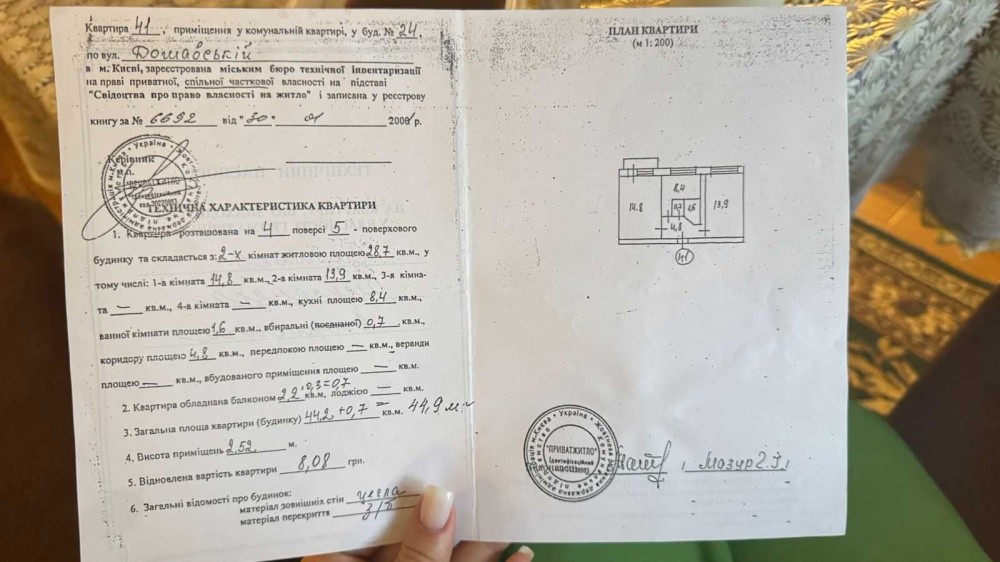 Квартира 41, приміщення у комунальній квартирі, у буд. № 24,
по вул. Домавській
в м. Києві, зареєстрована міським бюро технічної інвентаризації
на праві приватної, спільної часткової власності на підставі
"Свідоцтва про право власності на житло" і записана у реєстрову
книгу за № 6692 від "30" 01 2001 р.
Керівник
ТЕХНІЧНА ХАРАКТЕРИСТИКА КВАРТИРИ
1. Квартира розташована на 4 поверсі 5 - поверхового
будинку та складається з: 2-х кімнат житловою площею 28,7 кв.м., у
тому числі: 1-а кімната 14,8 кв.м., 2-а кімната 13,9 кв.м., 3-я кімна-
та — кв.м., 4-а кімната — кв.м., кухні площею 8,4 кв.м.,
ванної кімнати площею 1,6 кв.м., вбиральні (поєднаної) 0,7 кв.м.,
коридору площею 4,8 кв.м., передпокою площею — кв.м., веранди
площею — кв.м., вбудованого приміщення площею — кв.м.
2. Квартира обладнана балконом 2,2 · 0,3 = 0,7 кв.м, лоджією — кв.м.
3. Загальна площа квартири (будинку) 44,2 + 0,7 = кв.м. 44,9 м²
4. Висота приміщень 2,52 м.
5. Відновлена вартість квартири 8,08 грн.
6. Загальні відомості про будинок:
матеріал зовнішніх стін цегла
матеріал перекриття з/б
ПЛАН КВАРТИРИ
(м 1: 200)
14.8
8,4
0,7
1,6
13,9
4,8
41
"ПРИВАТЖИТЛО"
Мазур Г.І.